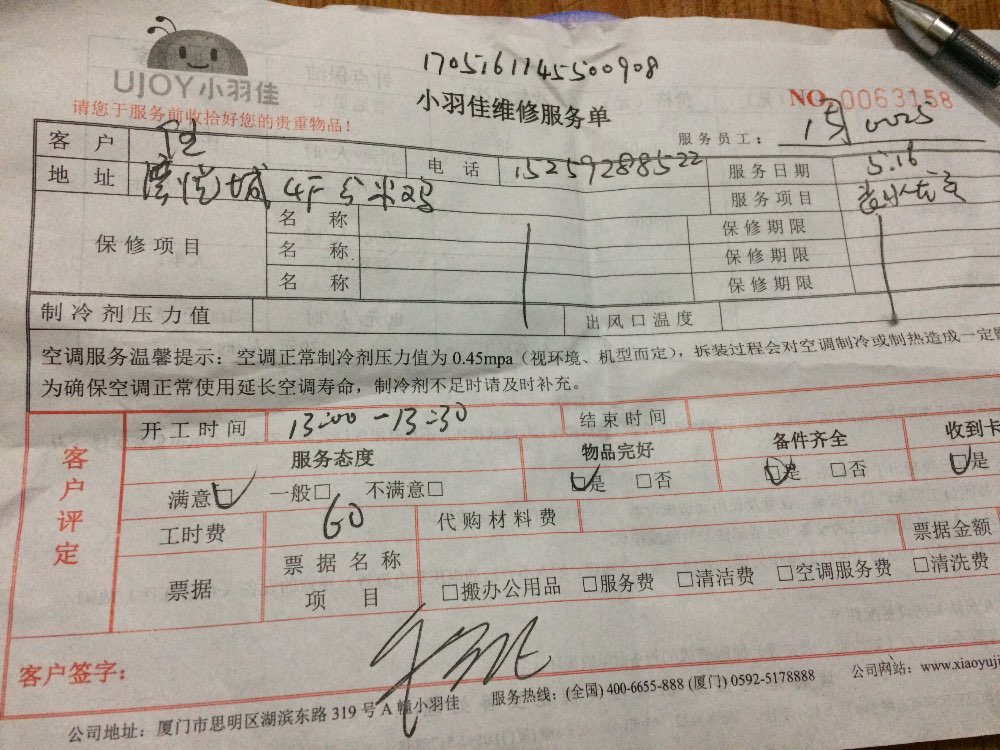 UJOY小羽佳
1705161145500908
请您于服务前收拾好您的贵重物品!
小羽佳维修服务单
NO 0063158
服务员工: 0025
客户
电话 15259288522
服务日期 5.16
地址 城4F
服务项目
保修项目
名称 保修期限
名称 保修期限
名称 保修期限
制冷剂压力值 出风口温度
空调服务温馨提示:空调正常制冷剂压力值为0.45mpa(视环境、机型而定),拆装过程会对空调制冷或制热造成一定
为确保空调正常使用延长空调寿命,制冷剂不足时请及时补充。
客户评定
开工时间 13:00-13:30 结束时间
服务态度 物品完好 备件齐全 收到卡
满意□ 一般□ 不满意□ □是 □否 □是 □否 □是
工时费 60 代购材料费
票据金额
票据 票据名称
项目 □搬办公用品 □服务费 □清洁费 □空调服务费 □清洗费
客户签字:
公司地址:厦门市思明区湖滨东路319号A幢小羽佳 服务热线:(全国)400-6655-888(厦门)0592-5178888 公司网站:www.xiaoyuji